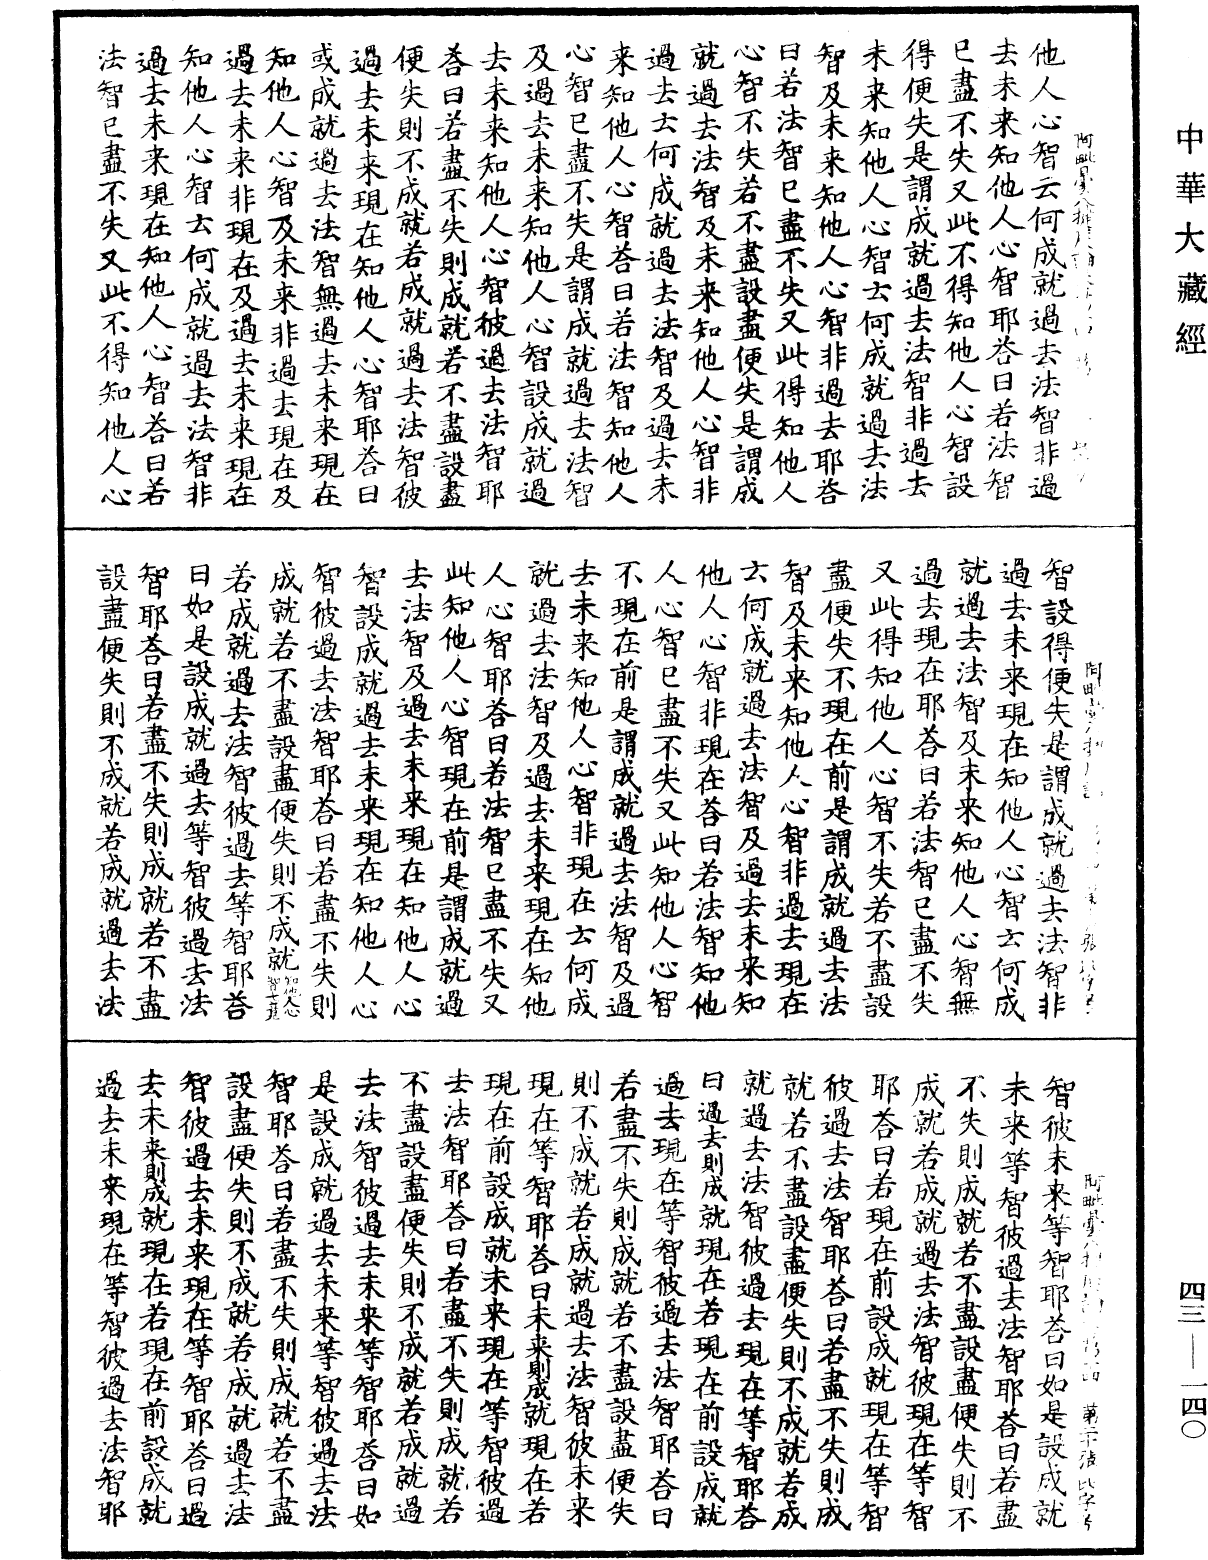 中華大藏經
他人心智云何成就過去法智非過
去未来知他人心智耶荅曰若法智
已盡不失又此不得知他人心智設
得便失是謂成就過去法智非過去
未来知他人心智云何成就過去法
智及未来知他人心智非過去耶荅
曰若法智已盡不失又此得知他人
心智不失若不盡設盡便失是謂成
就過去法智及未来知他人心智非
過去云何成就過去法智及過去未
来知他人心智荅曰若法智知他人
心智已盡不失是謂成就過去法智
及過去未来知他人心智設成就過
去未来知他人心智彼過去法智耶
荅曰若盡不失則成就若不盡設盡
便失則不成就若成就過去法智彼
過去未来現在知他人心智耶荅曰
或成就過去法智無過去未来現在
知他人心智及未来非過去現在及
過去未来非現在及過去未来現在
知他人心智云何成就過去法智非
過去未来現在知他人心智荅曰若
法智已盡不失又此不得知他人心
智設得便失是謂成就過去法智非
過去未来現在知他人心智云何成
就過去法智及未来知他人心智無
過去現在耶荅曰若法智已盡不失
又此得知他人心智不失若不盡設
盡便失不現在前是謂成就過去法
智及未来知他人心智非過去現在
云何成就過去法智及過去未来知
他人心智非現在荅曰若法智知他
人心智已盡不失又此知他人心智
不現在前是謂成就過去法智及過
去未来知他人心智非現在云何成
就過去法智及過去未来現在知他
人心智耶荅曰若法智已盡不失又
此知他人心智現在前是謂成就過
去法智及過去未来現在知他人心
智設成就過去未来現在知他人心
智彼過去法智耶荅曰若盡不失則
成就若不盡設盡便失則不成就知他人心智七竟
若成就過去法智彼過去等智耶荅
曰如是設成就過去等智彼過去法
智耶荅曰若盡不失則成就若不盡
設盡便失則不成就若成就過去法
智彼未来等智耶荅曰如是設成就
未来等智彼過去法智耶荅曰若盡
不失則成就若不盡設盡便失則不
成就若成就過去法智彼現在等智
耶荅曰若現在前設成就現在等智
彼過去法智耶荅曰若盡不失則成
就若不盡設盡便失則不成就若成
就過去法智彼過去現在等智耶荅
曰過去則成就現在若現在前設成就
過去現在等智彼過去法智耶荅曰
若盡不失則成就若不盡設盡便失
則不成就若成就過去法智彼未来
現在等智耶荅曰未来則成就現在若
現在前設成就未来現在等智彼過
去法智耶荅曰若盡不失則成就若
不盡設盡便失則不成就若成就過
去法智彼過去未来等智耶荅曰如
是設成就過去未来等智彼過去法
智耶荅曰若盡不失則成就若不盡
設盡便失則不成就若成就過去法
智彼過去未来現在等智耶荅曰過
去未来則成就現在若現在前設成就
過去未来現在等智彼過去法智耶
四三—一四〇